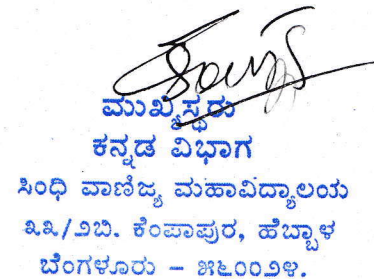 ಮುಖ್ಯಸ್ಥರು
ಕನ್ನಡ ವಿಭಾಗ
ಸಿಂಧಿ ವಾಣಿಜ್ಯ ಮಹಾವಿದ್ಯಾಲಯ
೩೩/೨ಬಿ. ಕೆಂಪಾಪುರ, ಹೆಬ್ಬಾಳ
ಬೆಂಗಳೂರು – ೫೬೦೦೨೪.